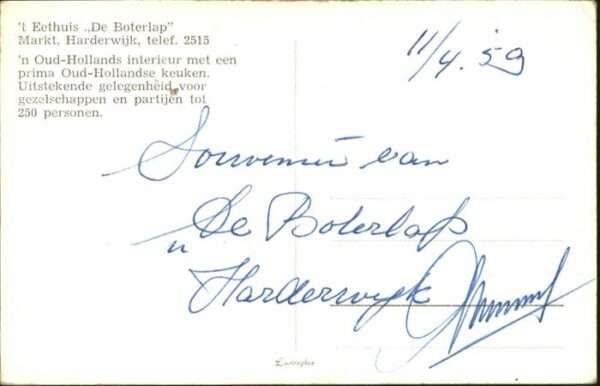 't Eethuis „De Boterlap”
Markt, Harderwijk, telef. 2515
'n Oud-Hollands interieur met een
prima Oud-Hollandse keuken.
Uitstekende gelegenheid voor
gezelschappen en partijen tot
250 personen.
11/4.59
Souvenir van
„De Boterlap
Harderwijk